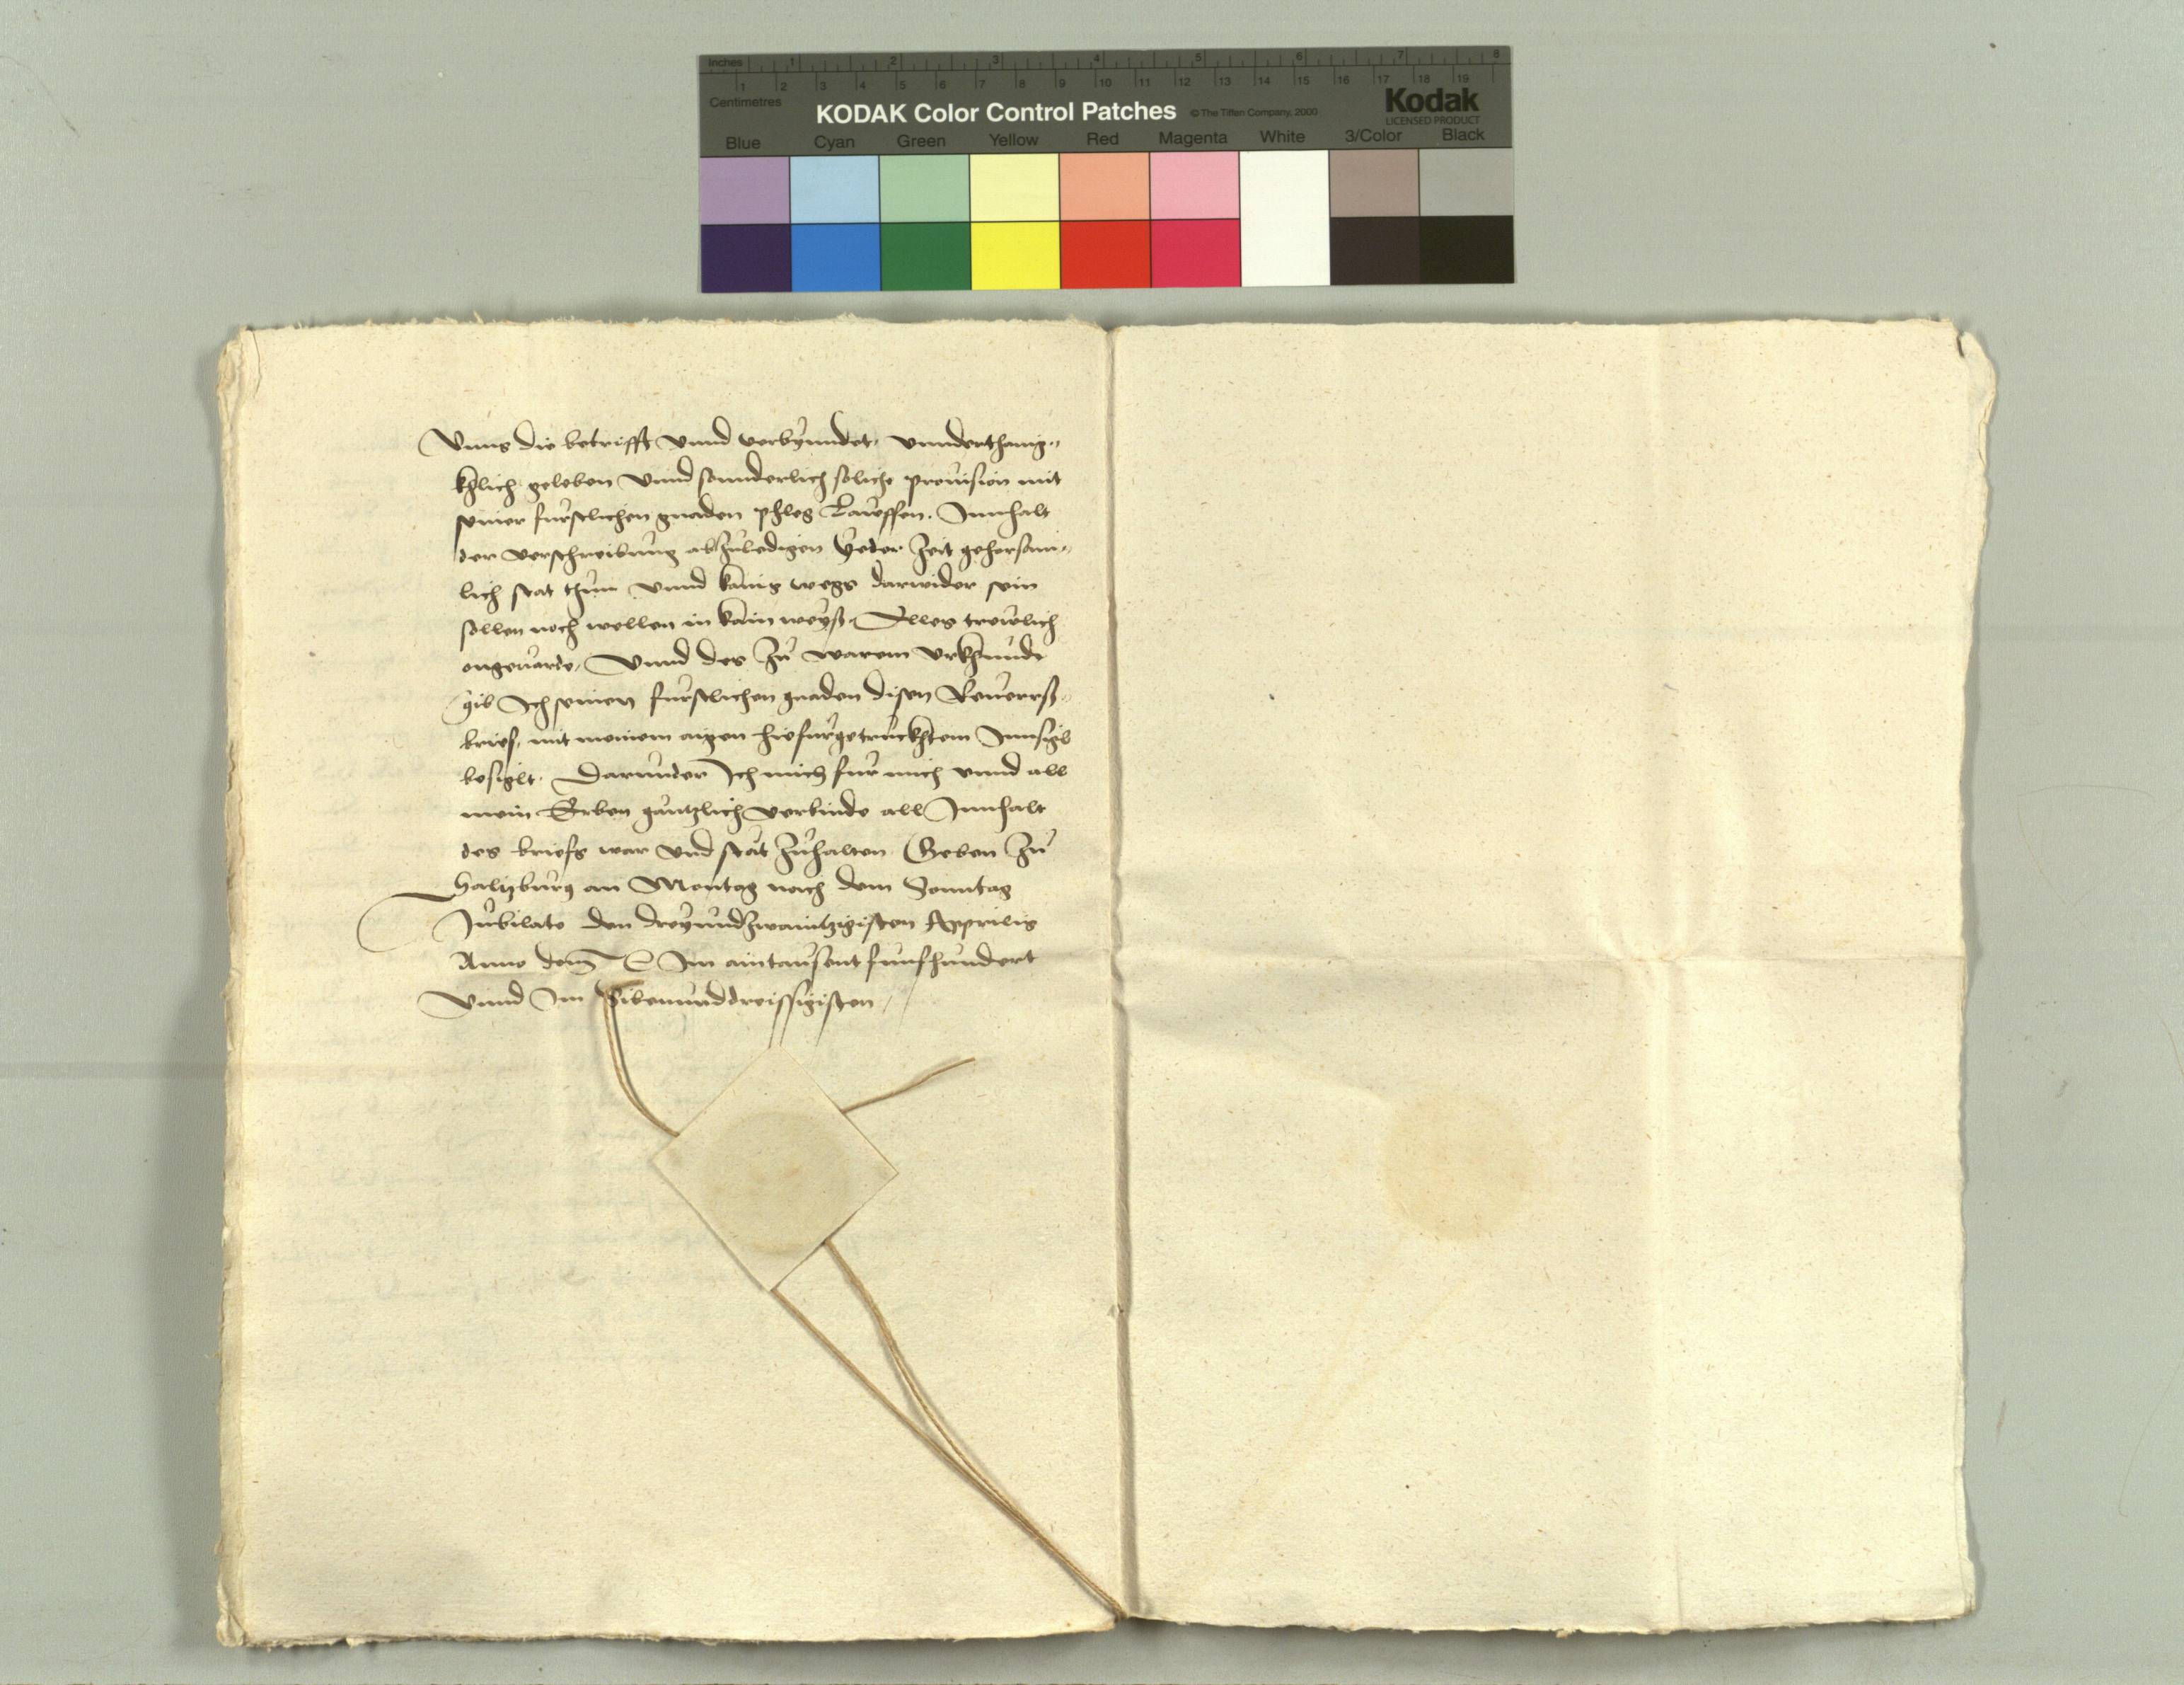 Inches 1 2 3 4 5 6 7 8
1 2 3 4 5 6 7 8 9 10 11 12 13 14 15 16 17 18 19
Centimetres
KODAK Color Control Patches © The Tiffen Company, 2000 Kodak
LICENSED PRODUCT
Blue Cyan Green Yellow Red Magenta White 3/Color Black
Vnns die betrifft vnnd verbynndet, vnnderthanig„
khlich geleben vnnd sonnderlich soliche prouision mit
seiner furstlichen gnaden phleg Lauffen. Innhalt
der verschreibung abzuledigen yeder zeit gehorsam„
lich stat thun vnnd kains wegs darwider sein
sollen noch wellen in kain weyß. Alles trewlich
ongeuarde, Vnnd des zu warem vrkhundt
gib Ich seinen furstlichen gnaden disen Reuerrß„
brief, mit meinem aigen hiefurgetruckhtem Innsigl
besiglt. Darunder Ich mich fur mich vnnd all
mein Erben gantzlich verbinde all Innhalt
des briefs war vnd stät zuhalten. Geben zu
Saltzburg an Montag nach dem Sonntag
Jubilate den dreyundzwaintzigisten Apprilis
Anno domj Im aintausent funfhundert
vnnd Im Sibenunddreissigisten